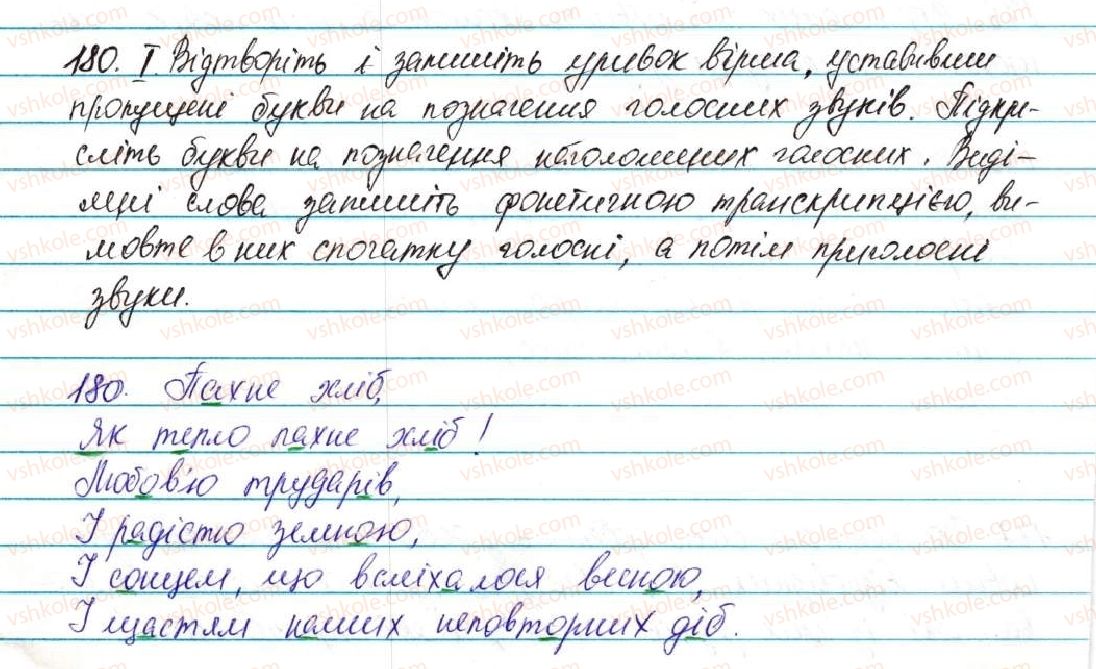 180. І. Відтворіть і запишіть уривок вірша, уставивши
пропущені букви на позначення голосних звуків. Підкре-
сліть букви на позначення наголошених голосних. Виді-
лені слова запишіть фонетичною транскрипцією, ви-
мовте в них спочатку голосні, а потім приголосні
звуки.
180. Пахне хліб,
Як тепло пахне хліб!
Любов'ю трударів,
І радістю земною,
І сонцем, що всміхалося весною,
І щастям наших неповторних діб.